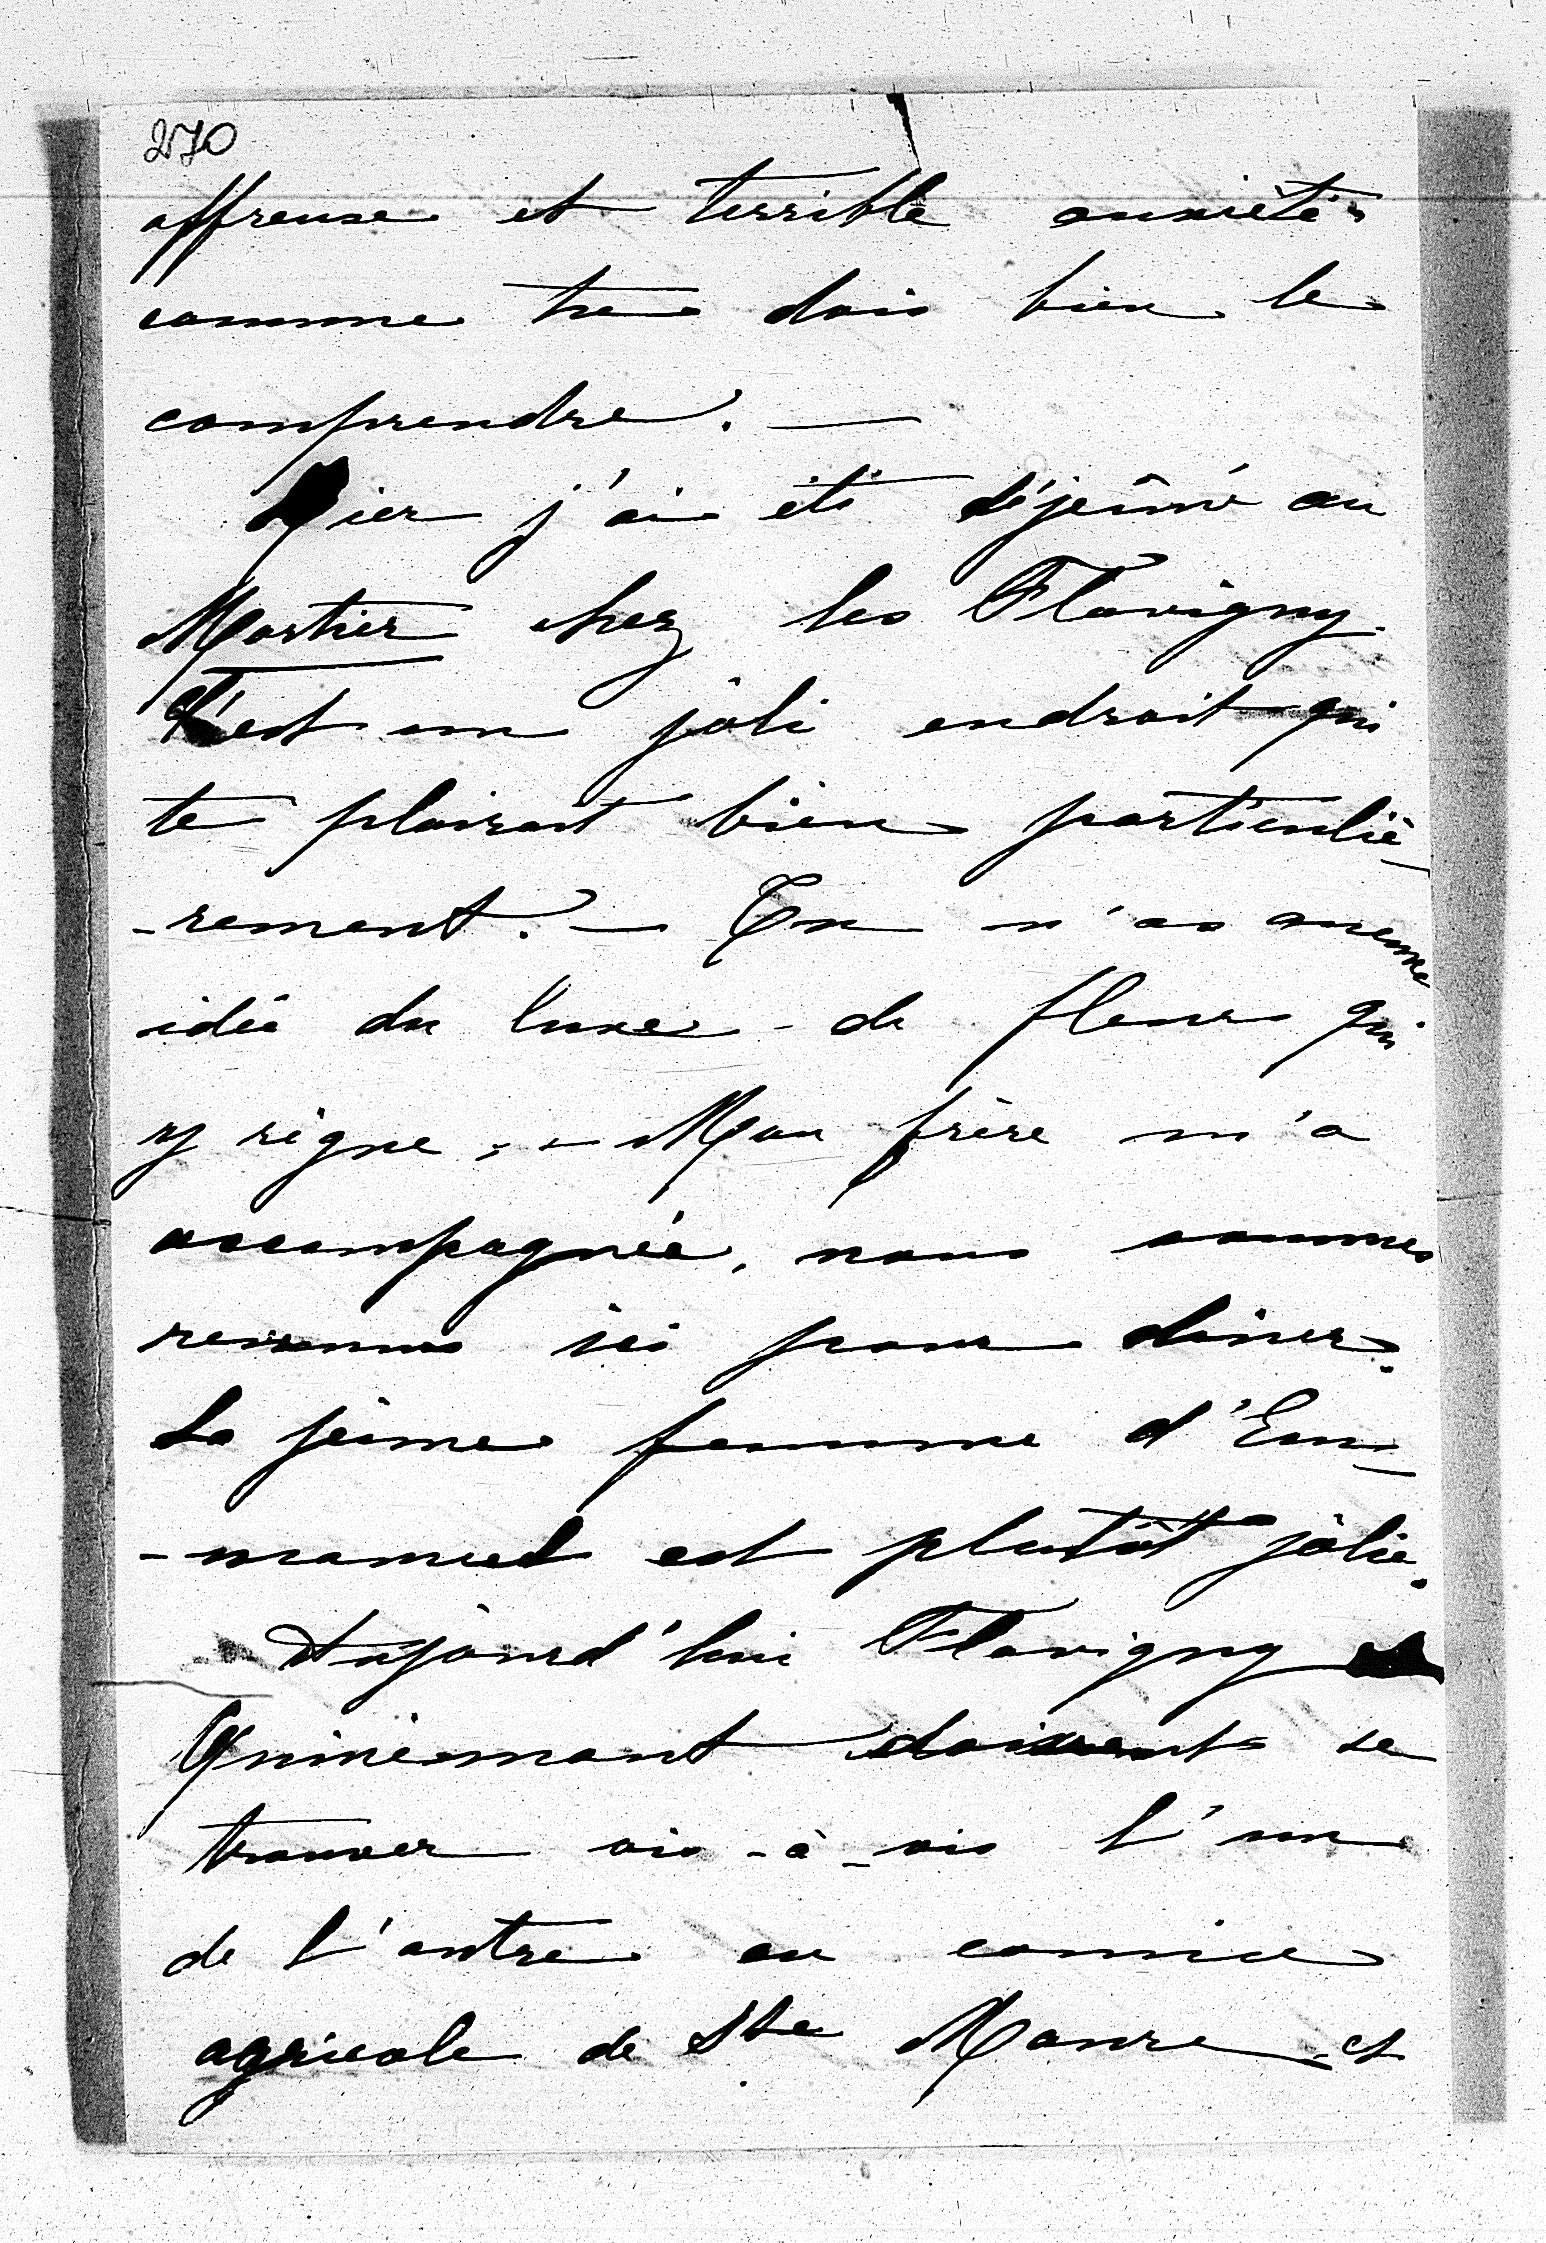 270
affreuse et terrible anxiété
comme tu dois bien le
comprendre. —
Hier j'ai été déjeûné au
Mortier chez les Flavigny.
C'est un joli endroit qui
te plairait bien particuliè-
-rement. — Tu n'as aucune
idée du luxe de fleurs qui
y règne. — Mon frère m'a
accompagnée, nous sommes
revenus ici pour dîner.
La jeune femme d'Em-
-manuel est plutôt jolie.
Aujourd'hui Flavigny et
Quinemont doivent se
trouver vis-à-vis l'un
de l'autre au comice
agricole de Ste Maure et